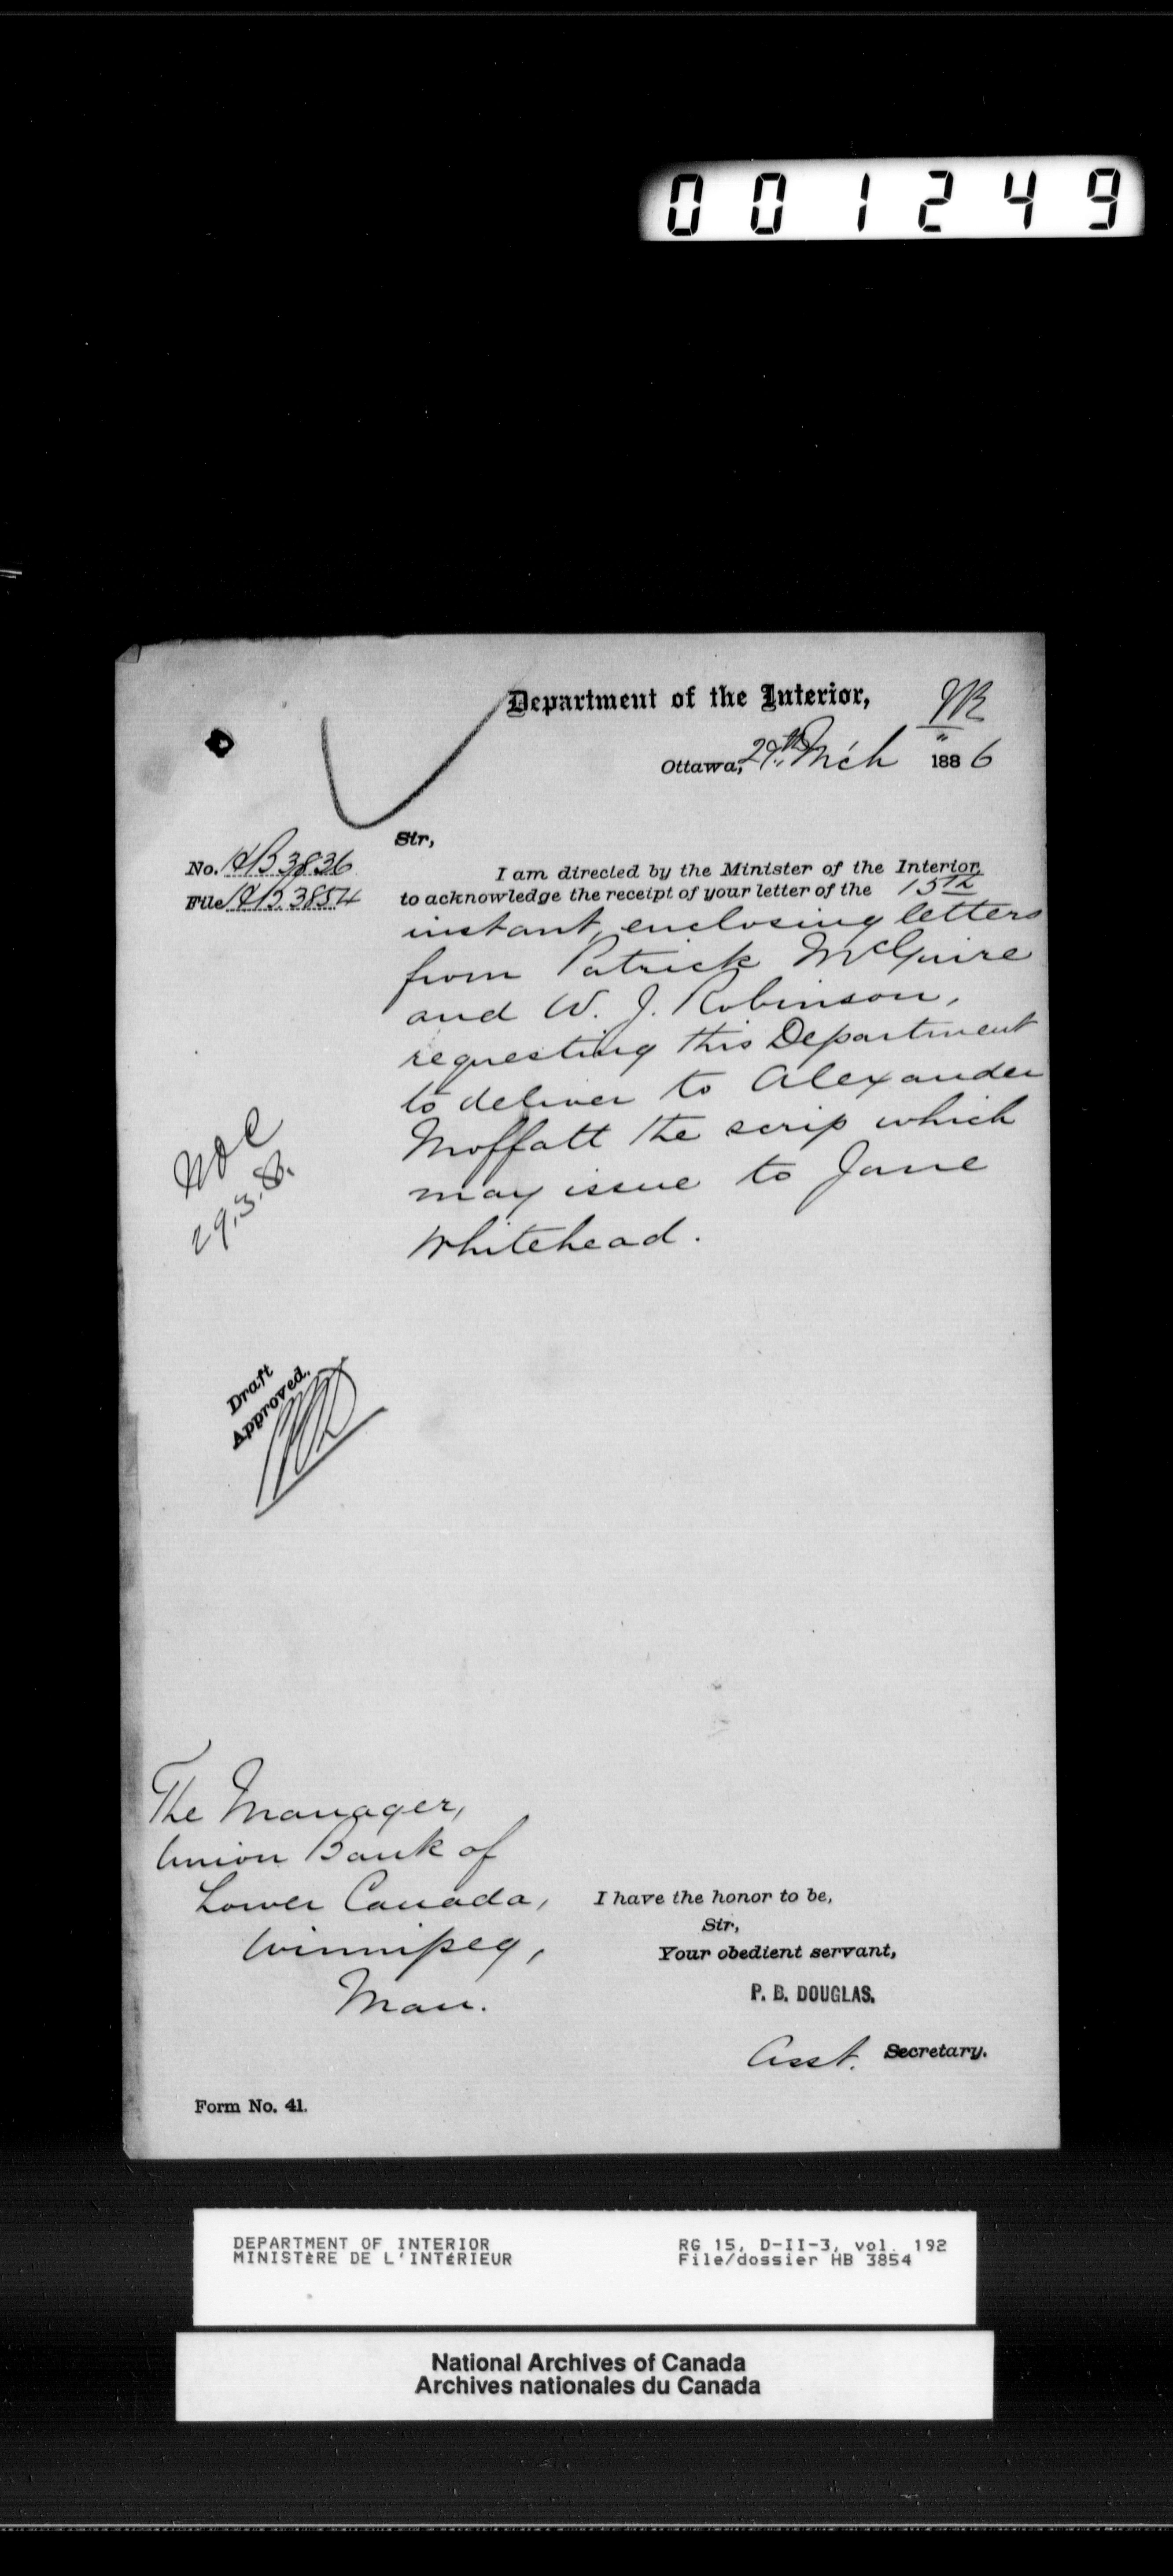 001249
Department of the Interior,
Ottawa, 29th M'ch 1886
Sir,
No. HB 3836
File HB 3854
I am directed by the Minister of the Interior
to acknowledge the receipt of your letter of the 15th
instant, enclosing letters
from Patrick McGuire
and W. J. Robinson,
requesting this Department
to deliver to Alexander
Moffatt the scrip which
may issue to Jane
Whitehead.
29.3.8.
Draft
Approved.
The Manager,
Union Bank of
Lower Canada,
Winnipeg,
Man.
I have the honor to be,
Sir,
Your obedient servant,
P. B. DOUGLAS.
Asst. Secretary.
Form No. 41.
DEPARTMENT OF INTERIOR RG 15, D-II-3, vol. 192
MINISTÈRE DE L'INTÉRIEUR File/dossier HB 3854
National Archives of Canada
Archives nationales du Canada